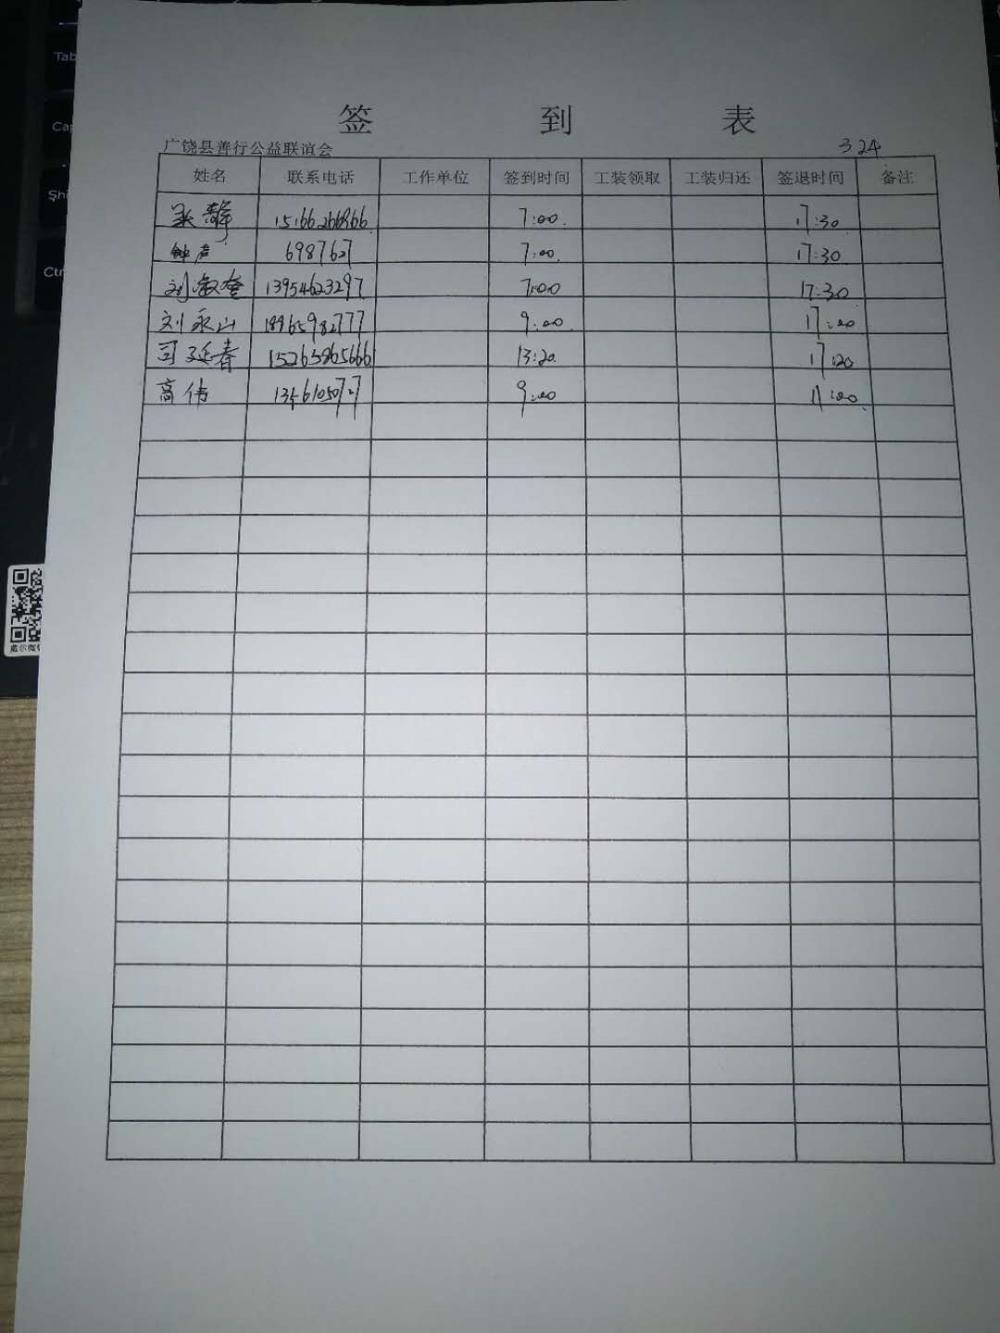 签 到 表
广饶县善行公益联谊会 3 24
姓名 联系电话 工作单位 签到时间 工装领取 工装归还 签退时间 备注
7:00 17:30
钟声 6987627 7:00 17:30
刘 13954623297 7:00 17:30
刘永山 9:00 17:20
司延春 15265865666 13:20 17:20
高伟 9:00 11:00
Tab
Ctrl